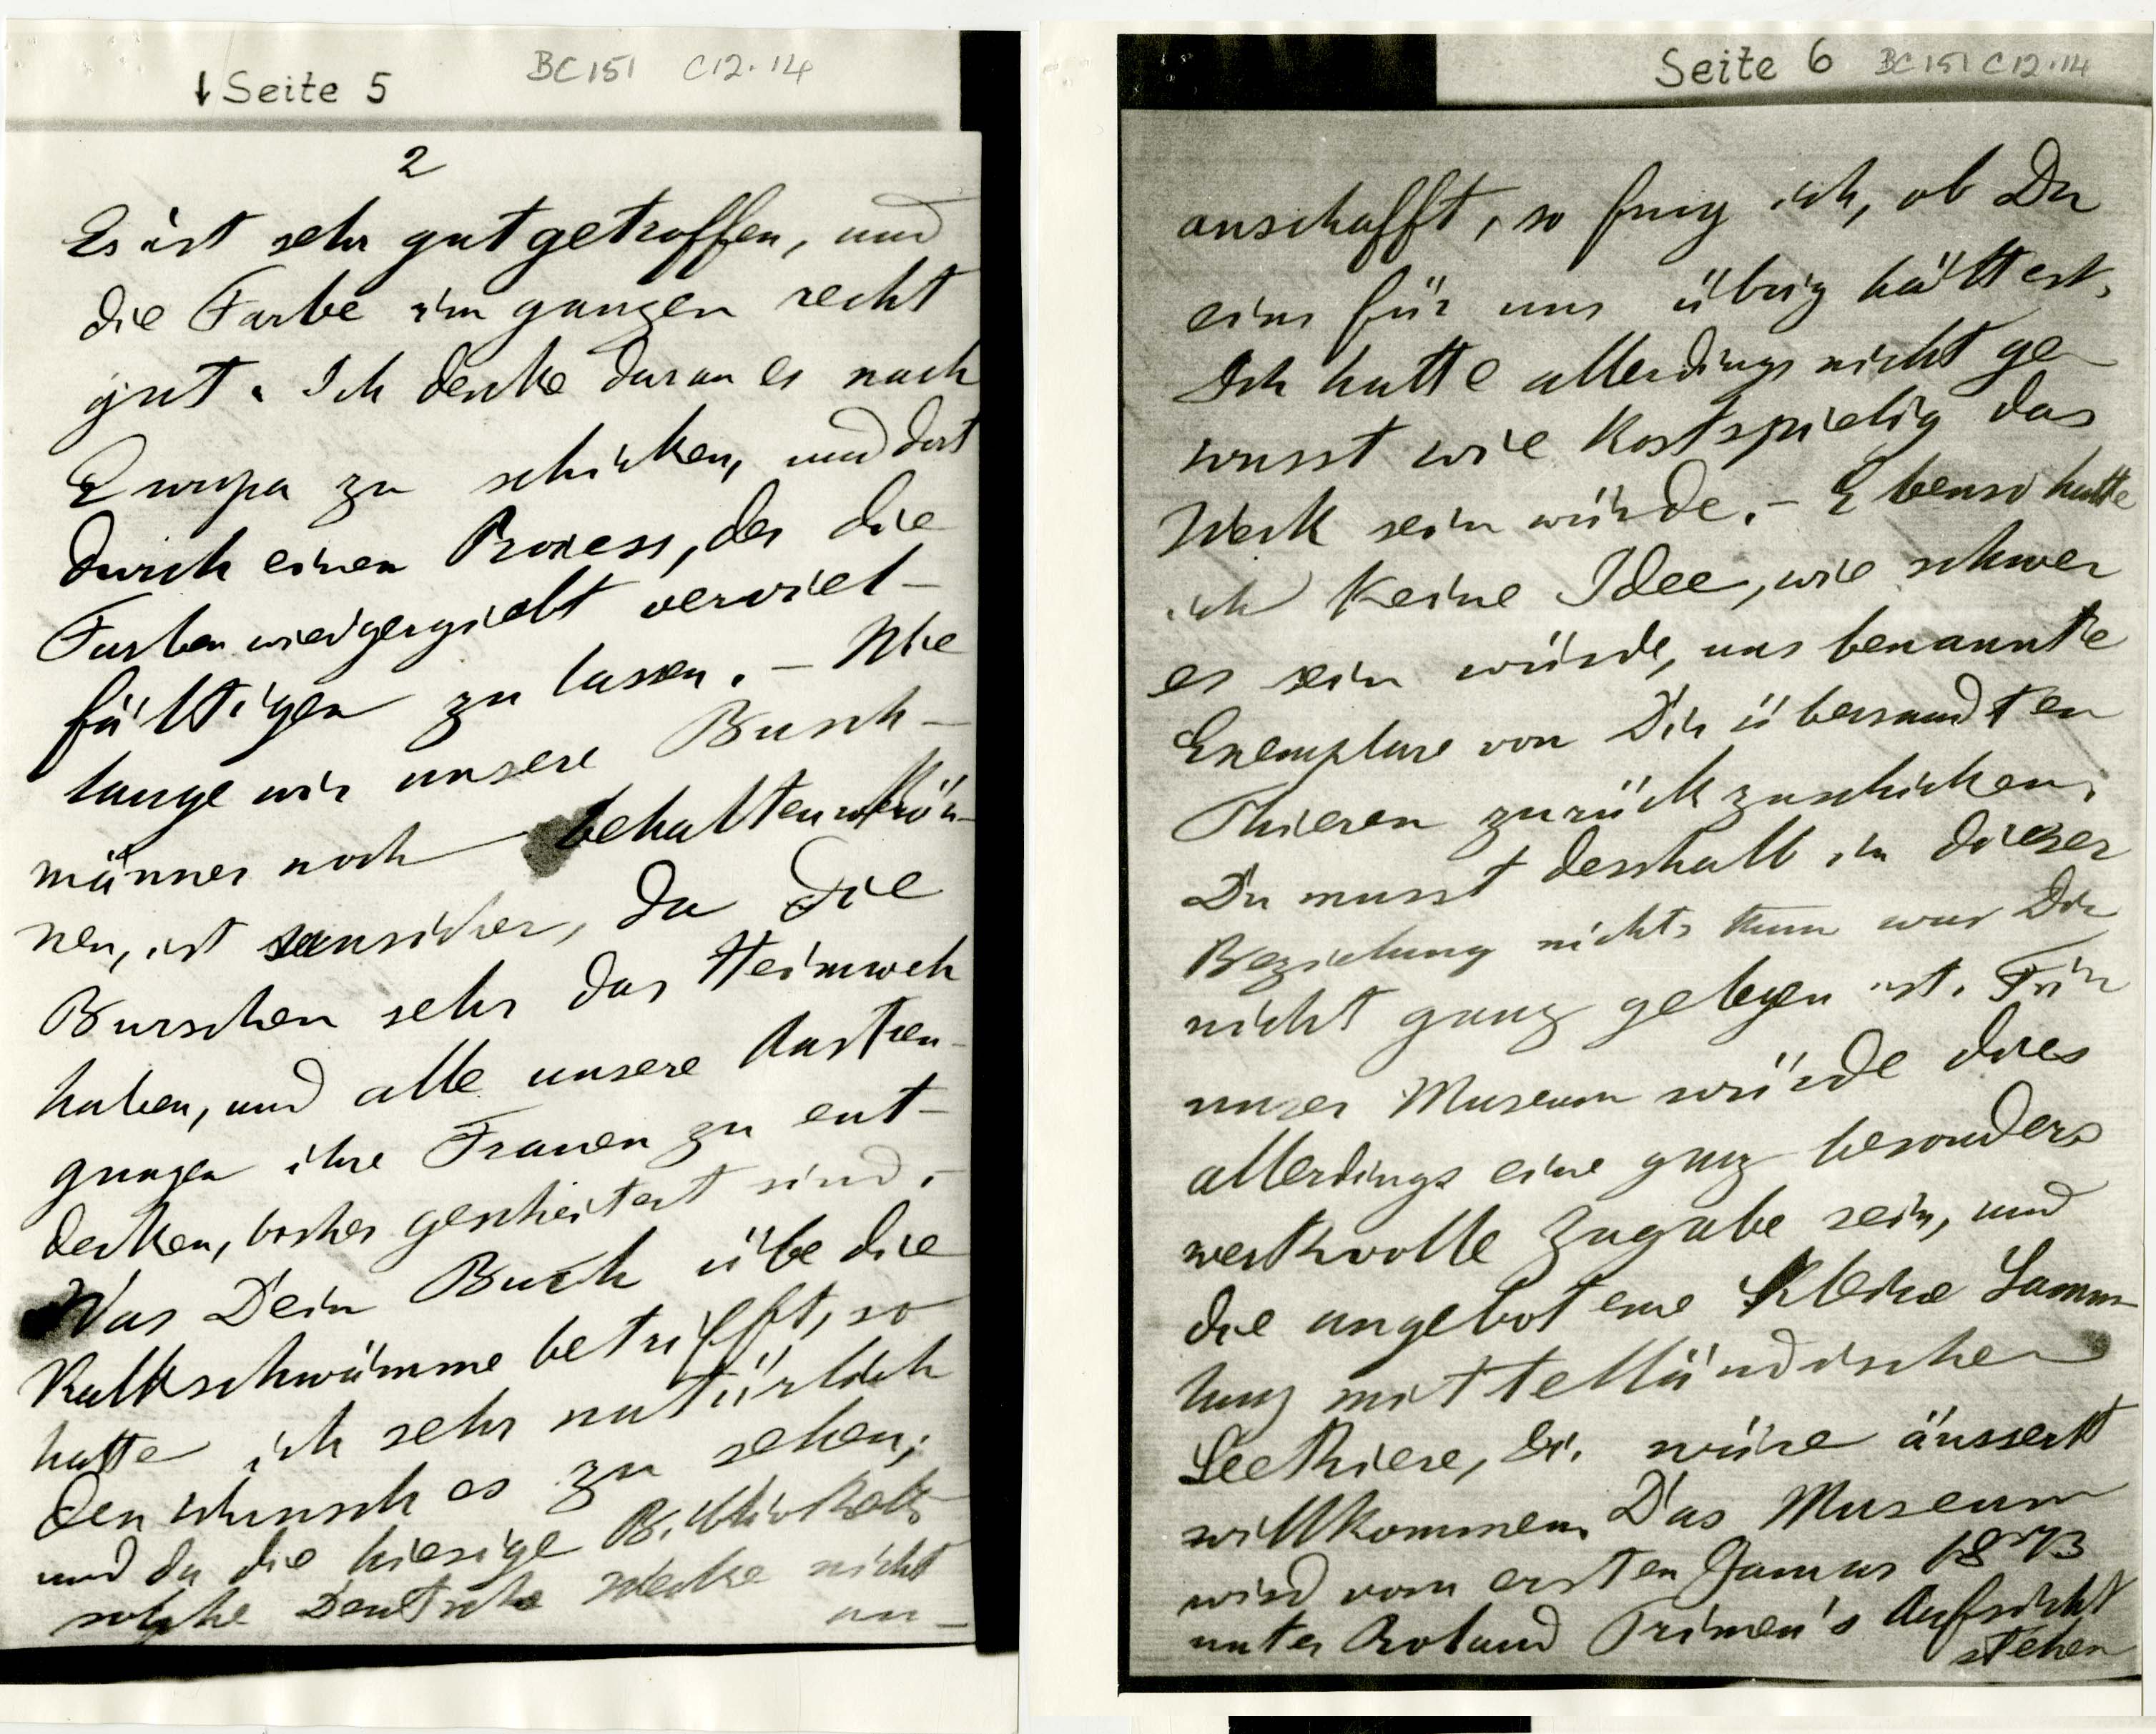 ↓ Seite 5 BC151 C12.14
2
Es ist sehr gut getroffen, und
die Farbe im ganzen recht
gut. Ich denke daran es nach
Europa zu schicken, und dort
durch einen Prozess, der die
Farben wiedergiebt verviel-
fältigen zu lassen. – Wie
lange wir unsere Busch-
männer noch behalten kön-
nen, ist unsicher, da die
Burschen sehr das Heimweh
haben, und alle unsere Anstren-
gungen ihre Frauen zu ent-
decken, bisher gescheitert sind. –
Was Dein Buch übe die
Kalkschwämme betrifft, so
hatte ich sehr natürlich
den Wunsch es zu sehen;
und da die hiesige Bibliothek
solche Deutsche Werke nicht
an-
Seite 6 BC151 C12.14
anschafft, so frug ich, ob Du
eins für uns übrig hättest.
Ich hatte allerdings nicht ge-
wusst wie kostspielig das
Werk sein würde. – Ebenso hatte
ich keine Idee, wie schwer
es sein würde, uns benannte
Exemplare von Dir übersandten
Thieren zurückzuschicken.
Du musst deshalb in dieser
Beziehung nichts thun was Dir
nicht ganz gelegen ist. Für
unser Museum würde dies
allerdings eine ganz besonders
werthvolle Zugabe sein, und
die angebotene kleine Samm-
lung mittelländischer
Seethiere, &c. wäre äusserst
willkommen. Das Museum
wird vom ersten Januar 1873
unter Roland Trimen's Aufsicht
stehen